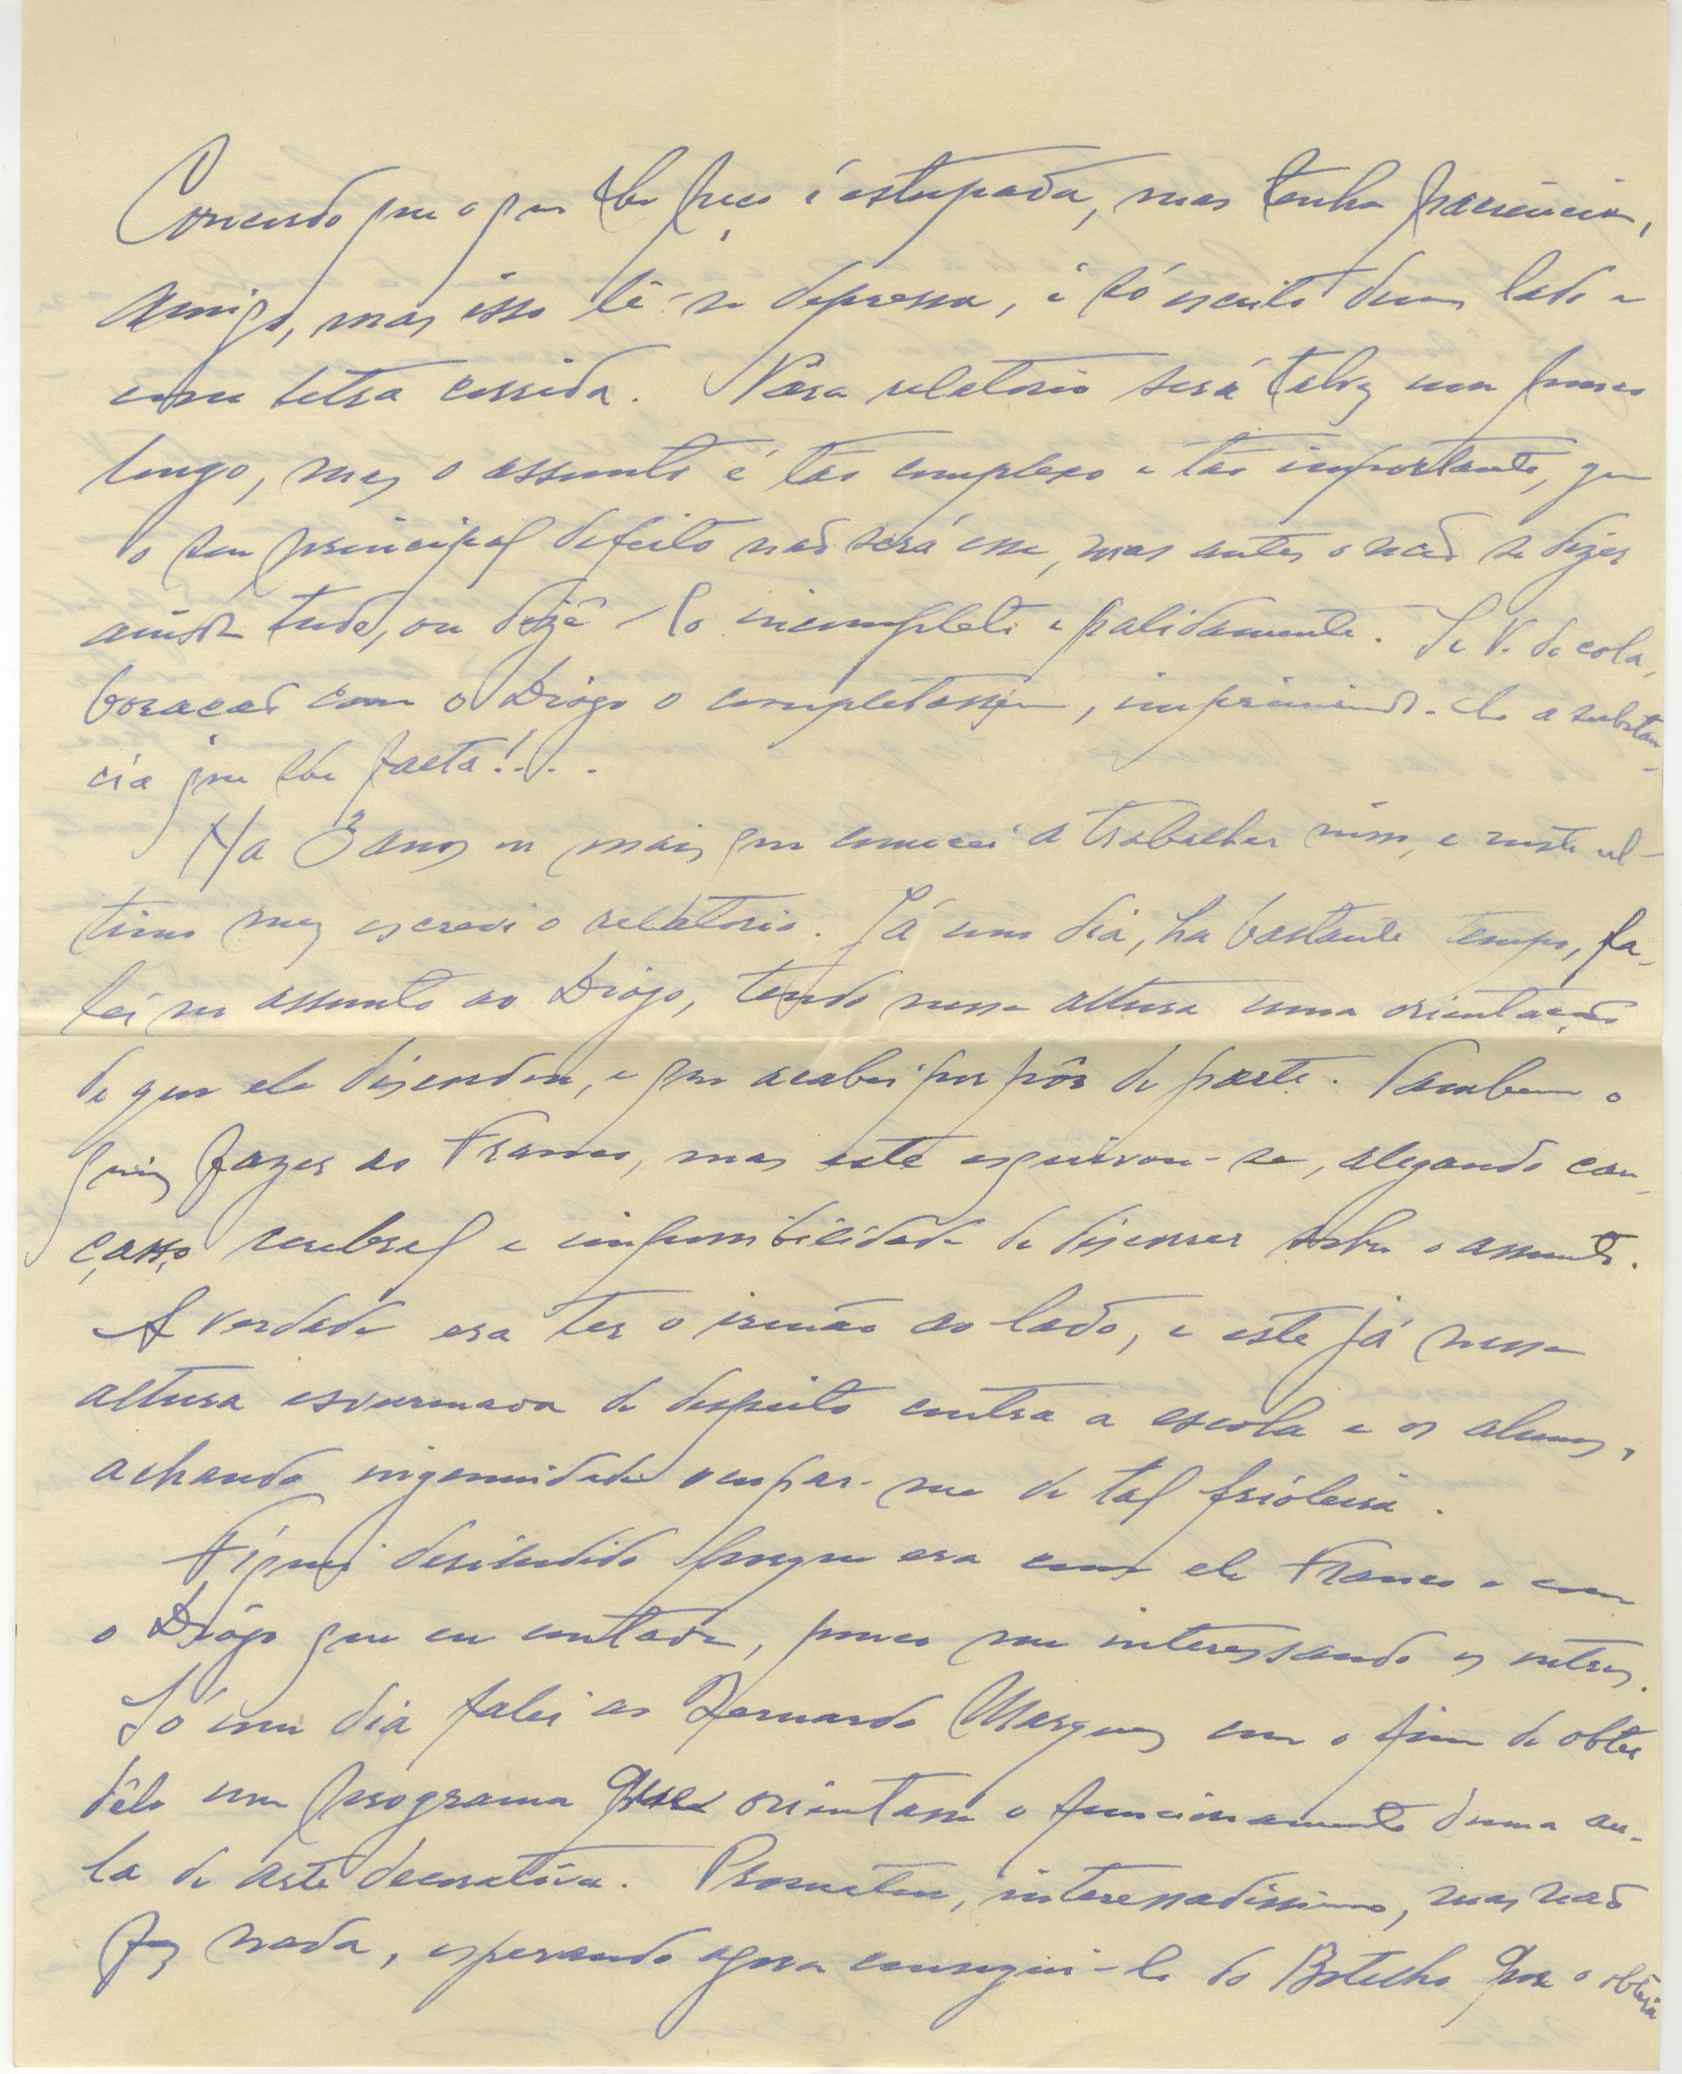 Concordo que o que lhe peço é estopada, mas tenha paciencia,
amigo, mas isso lê-se depressa, é só escrito dum lado e
com letra corrida. O relatorio será talvez um pouco
longo, mas o assunto é tão complexo e tão importante, que
o seu principal defeito não será esse, mas antes o não se dizer
ainda tudo, ou dizê-lo incompleta e palidamente. Se V. de cola-
boração com o Diogo o completassem, imprimindo-lhe a substan-
cia que lhe falta!...
Ha 3 anos ou mais que comecei a trabalhar nisso, e neste ul-
timo mez escrevi o relatorio. Já um dia, ha bastante tempo, fa-
lei no assunto ao Diogo, tendo nessa altura uma orientação
de que ele discordou, e que acabei por pôr de parte. Tambem o
quiz fazer ao Franco, mas este esquivou-se, alegando can-
çasso cerebral e impossibilidade de discorrer sobre o assunto.
A verdade era ter o irmão ao lado, e este já nessa
altura esvurmava de despeito contra a escola e os alunos,
achando ingenuidade ocupar-me de tal frioleira.
Fiquei desiludido porque era com ele Franco e com
o Diogo que eu contava, pouco me interessando os outros.
Só um dia falei ao Bernardo Marques com o fim de obter
dêle um programa que orientasse o funcionamento duma au-
la de arte decorativa. Prometeu, interessadissimo, mas não
fez nada, esperando agora consegui-lo do Botelho que o obterá